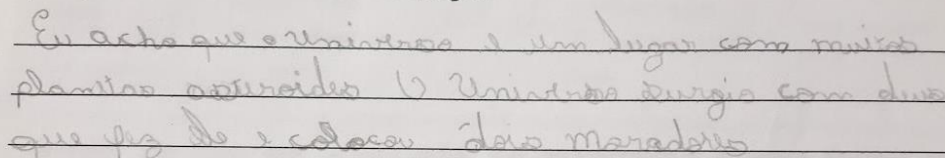 Eu acho que o universo e um lugar com muitos
planitas asturoides O Universo surgio com deus
que fez de e colocou dois moradores